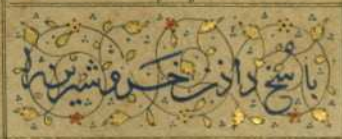 پاسخ دادن خسرو شیرین را